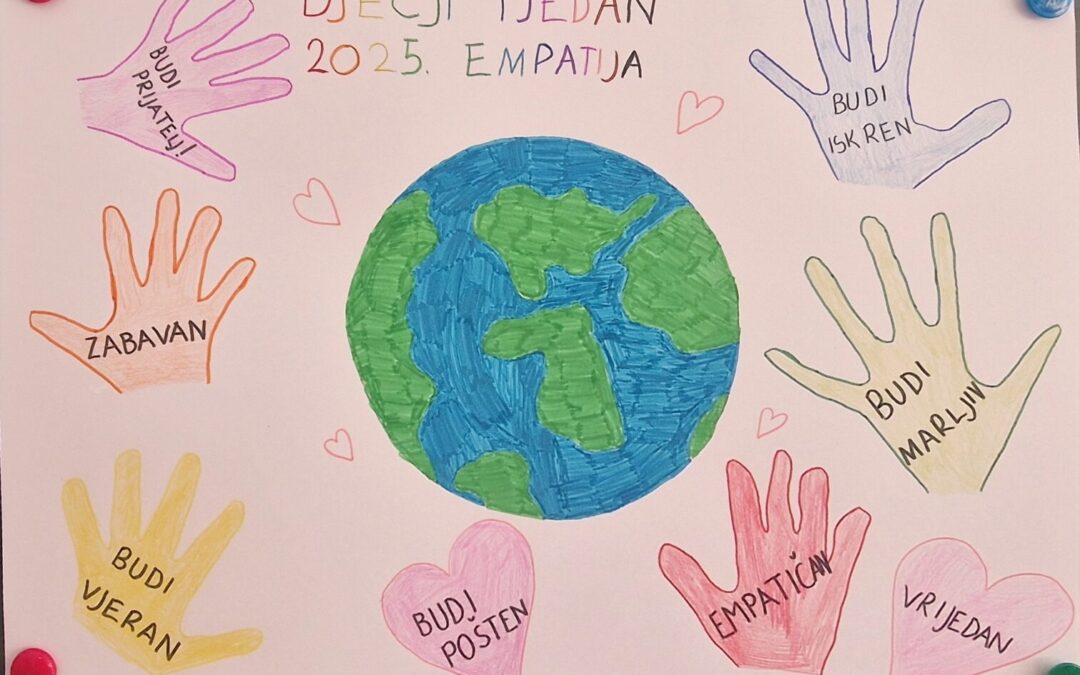 DJEČJI TJEDAN
2025. EMPATIJA
BUDI
PRIJATELJ!
BUDI
ISKREN
ZABAVAN
BUDI
MARLJIV
BUDI
VJERAN
BUDI
POŠTEN
EMPATIČAN
VRIJEDAN